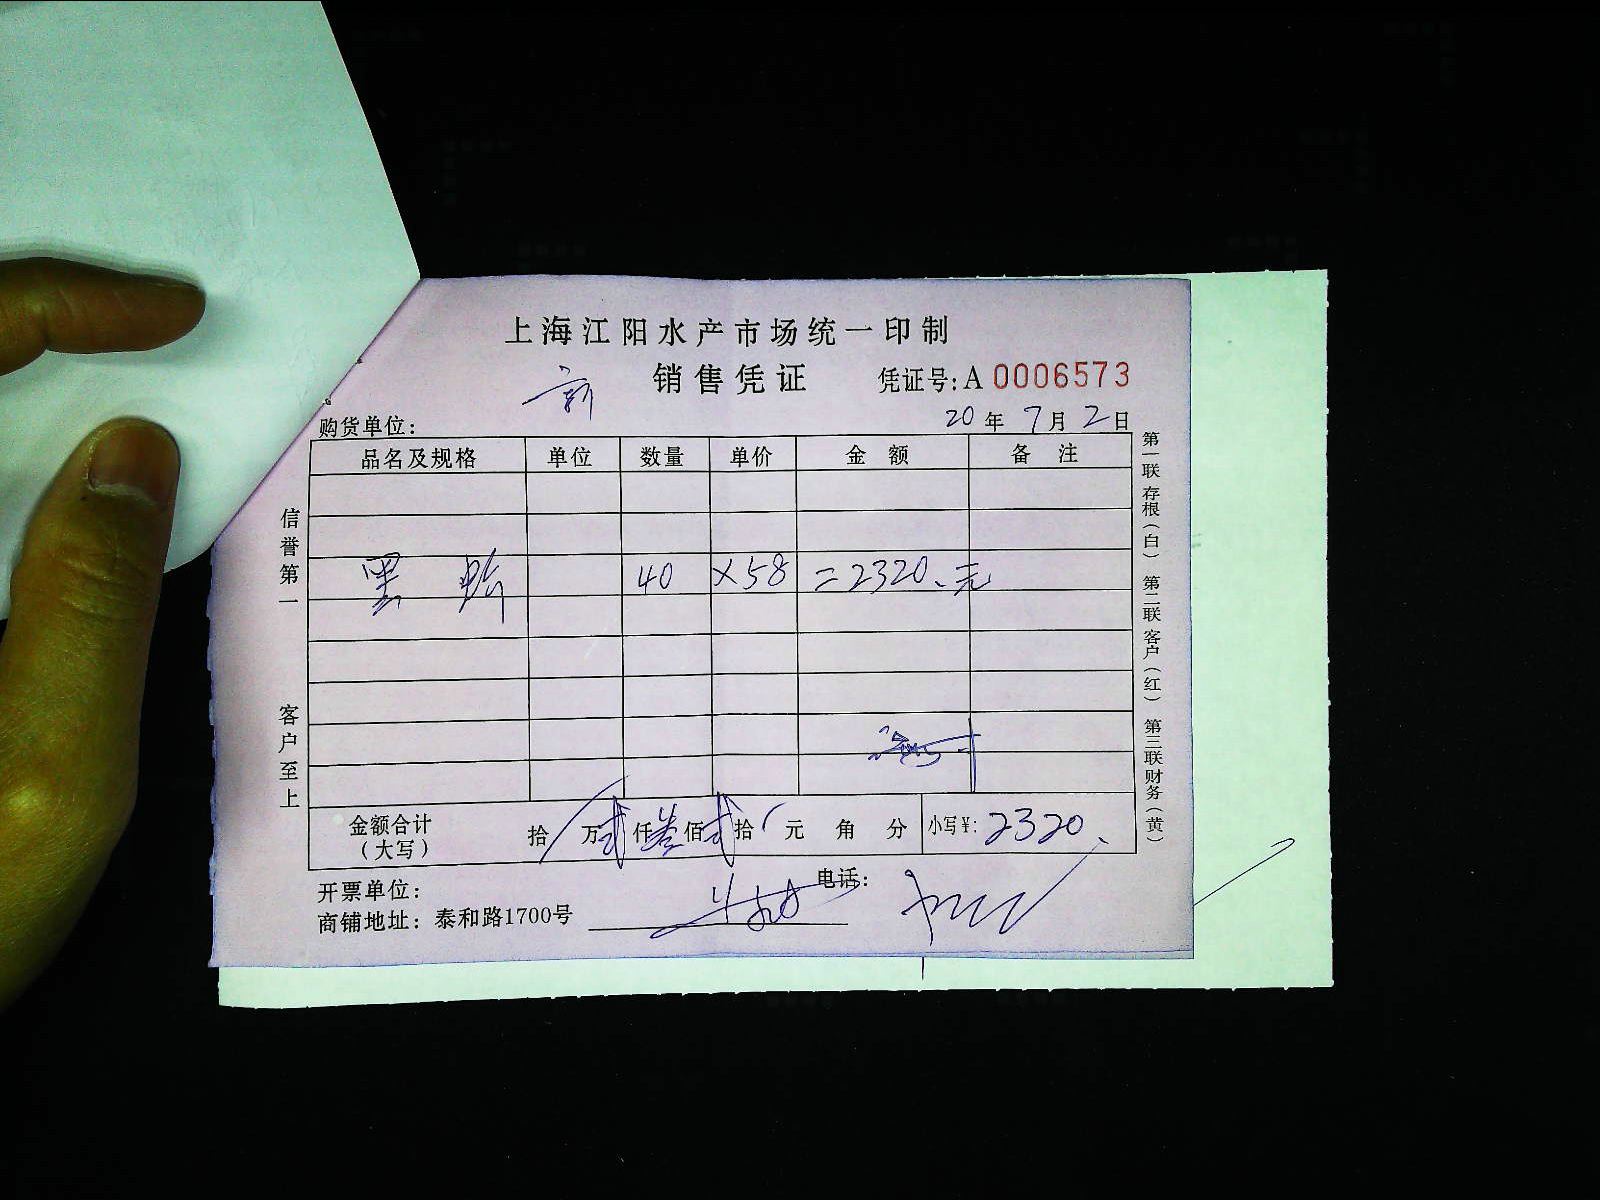 上海江阳水产市场统一印制
销售凭证
凭证号:A 0006573
新
购货单位:
20年7月2日
品名及规格 单位 数量 单价 金额 备注
黑 40 ×58 =2320.元
金额合计(大写) 拾 万贰仟叁佰贰拾 元 角 分 小写¥: 2320.
开票单位:
电话:
商铺地址: 泰和路1700号
信誉第一 客户至上
第一联存根(白) 第二联客户(红) 第三联财务(黄)